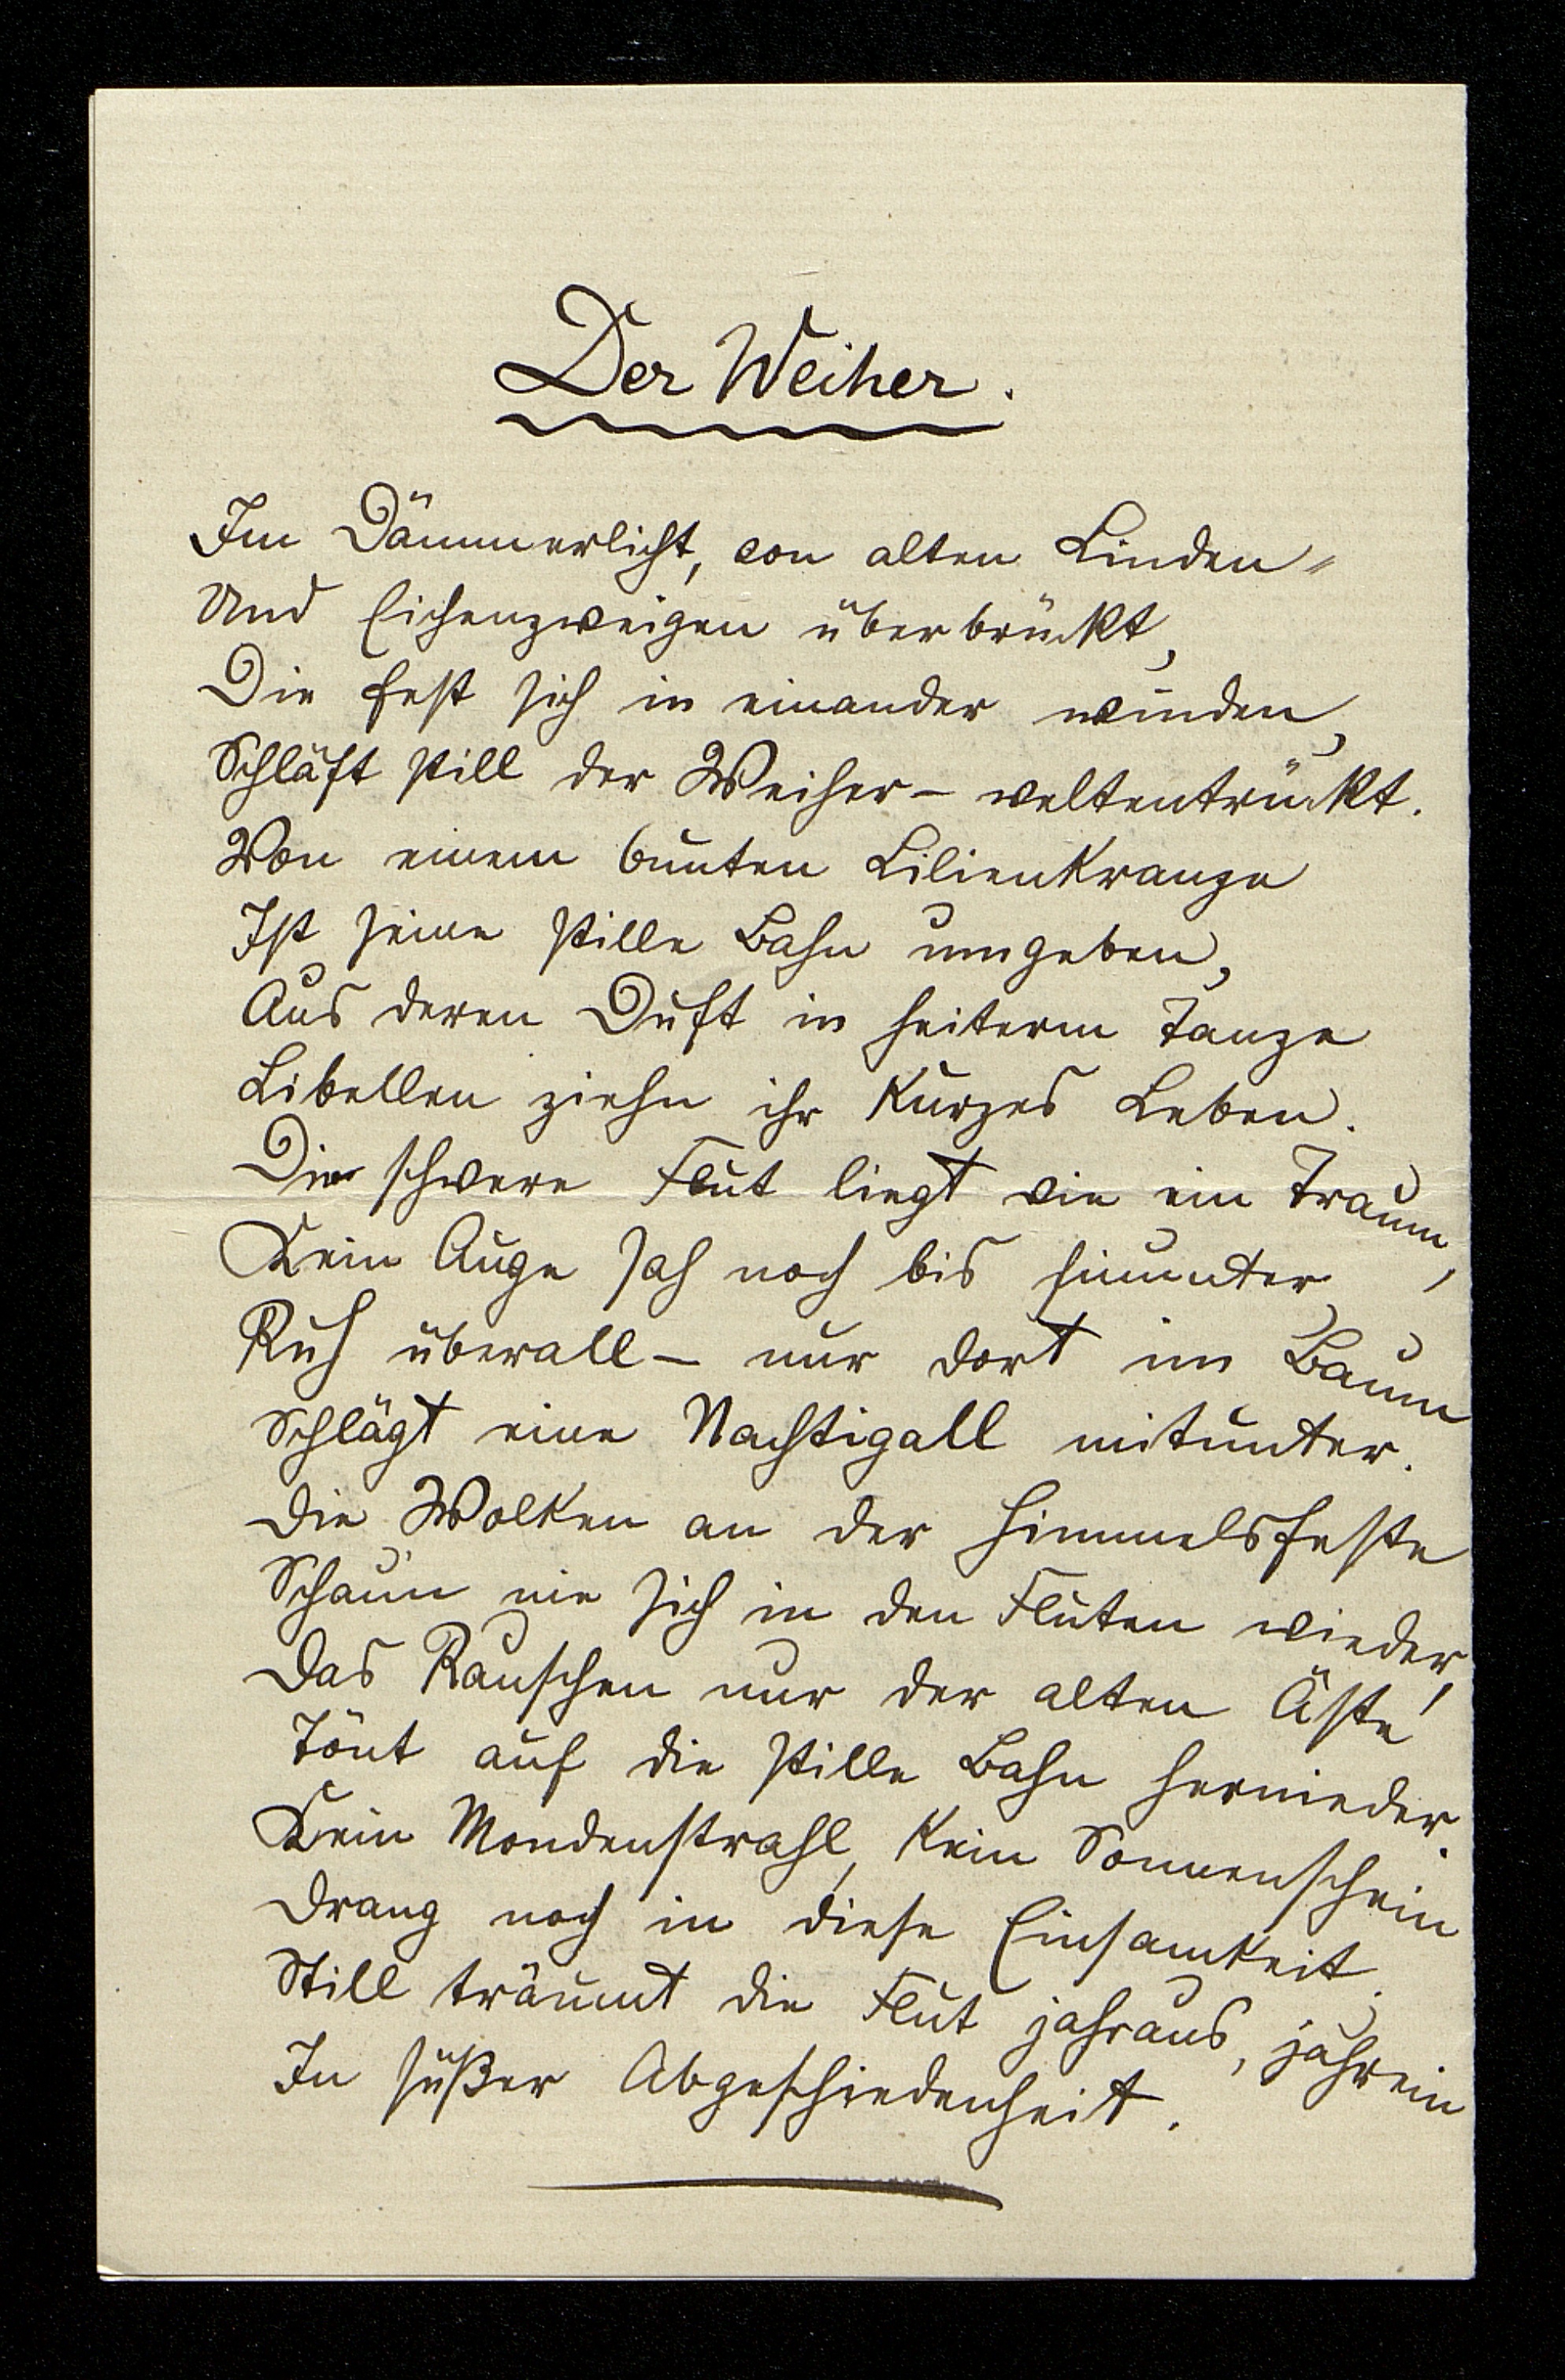 Der Weiher.
Im Dämmerlicht, von alten Linden-
Und Eichenzweigen überbrückt,
Die fest sich in einander winden,
Schläft still der Weiher – weltentrückt.
Von einem bunten Lilienkranze
Ist seine stille Bahn umgeben,
Aus deren Duft in heiterm Tanze
Libellen ziehn ihr kurzes Leben.
Die schwere Flut liegt wie ein Traum,
Kein Auge sah noch bis hinunter,
Ruh überall – nur dort im Baum
Schlägt eine Nachtigall mitunter.
Die Wolken an der Himmelsfeste
Schaun nie sich in den Fluten wieder,
Das Rauschen nur der alten Äste
Tönt auf die stille Bahn hernieder.
Kein Mondenstrahl, kein Sonnenschein
Drang noch in diese Einsamkeit,
Still träumt die Flut jahraus, jahrein
In süßer Abgeschiedenheit.